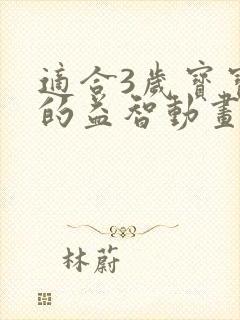 適合3歲寶寶
的益智動畫
林蔚